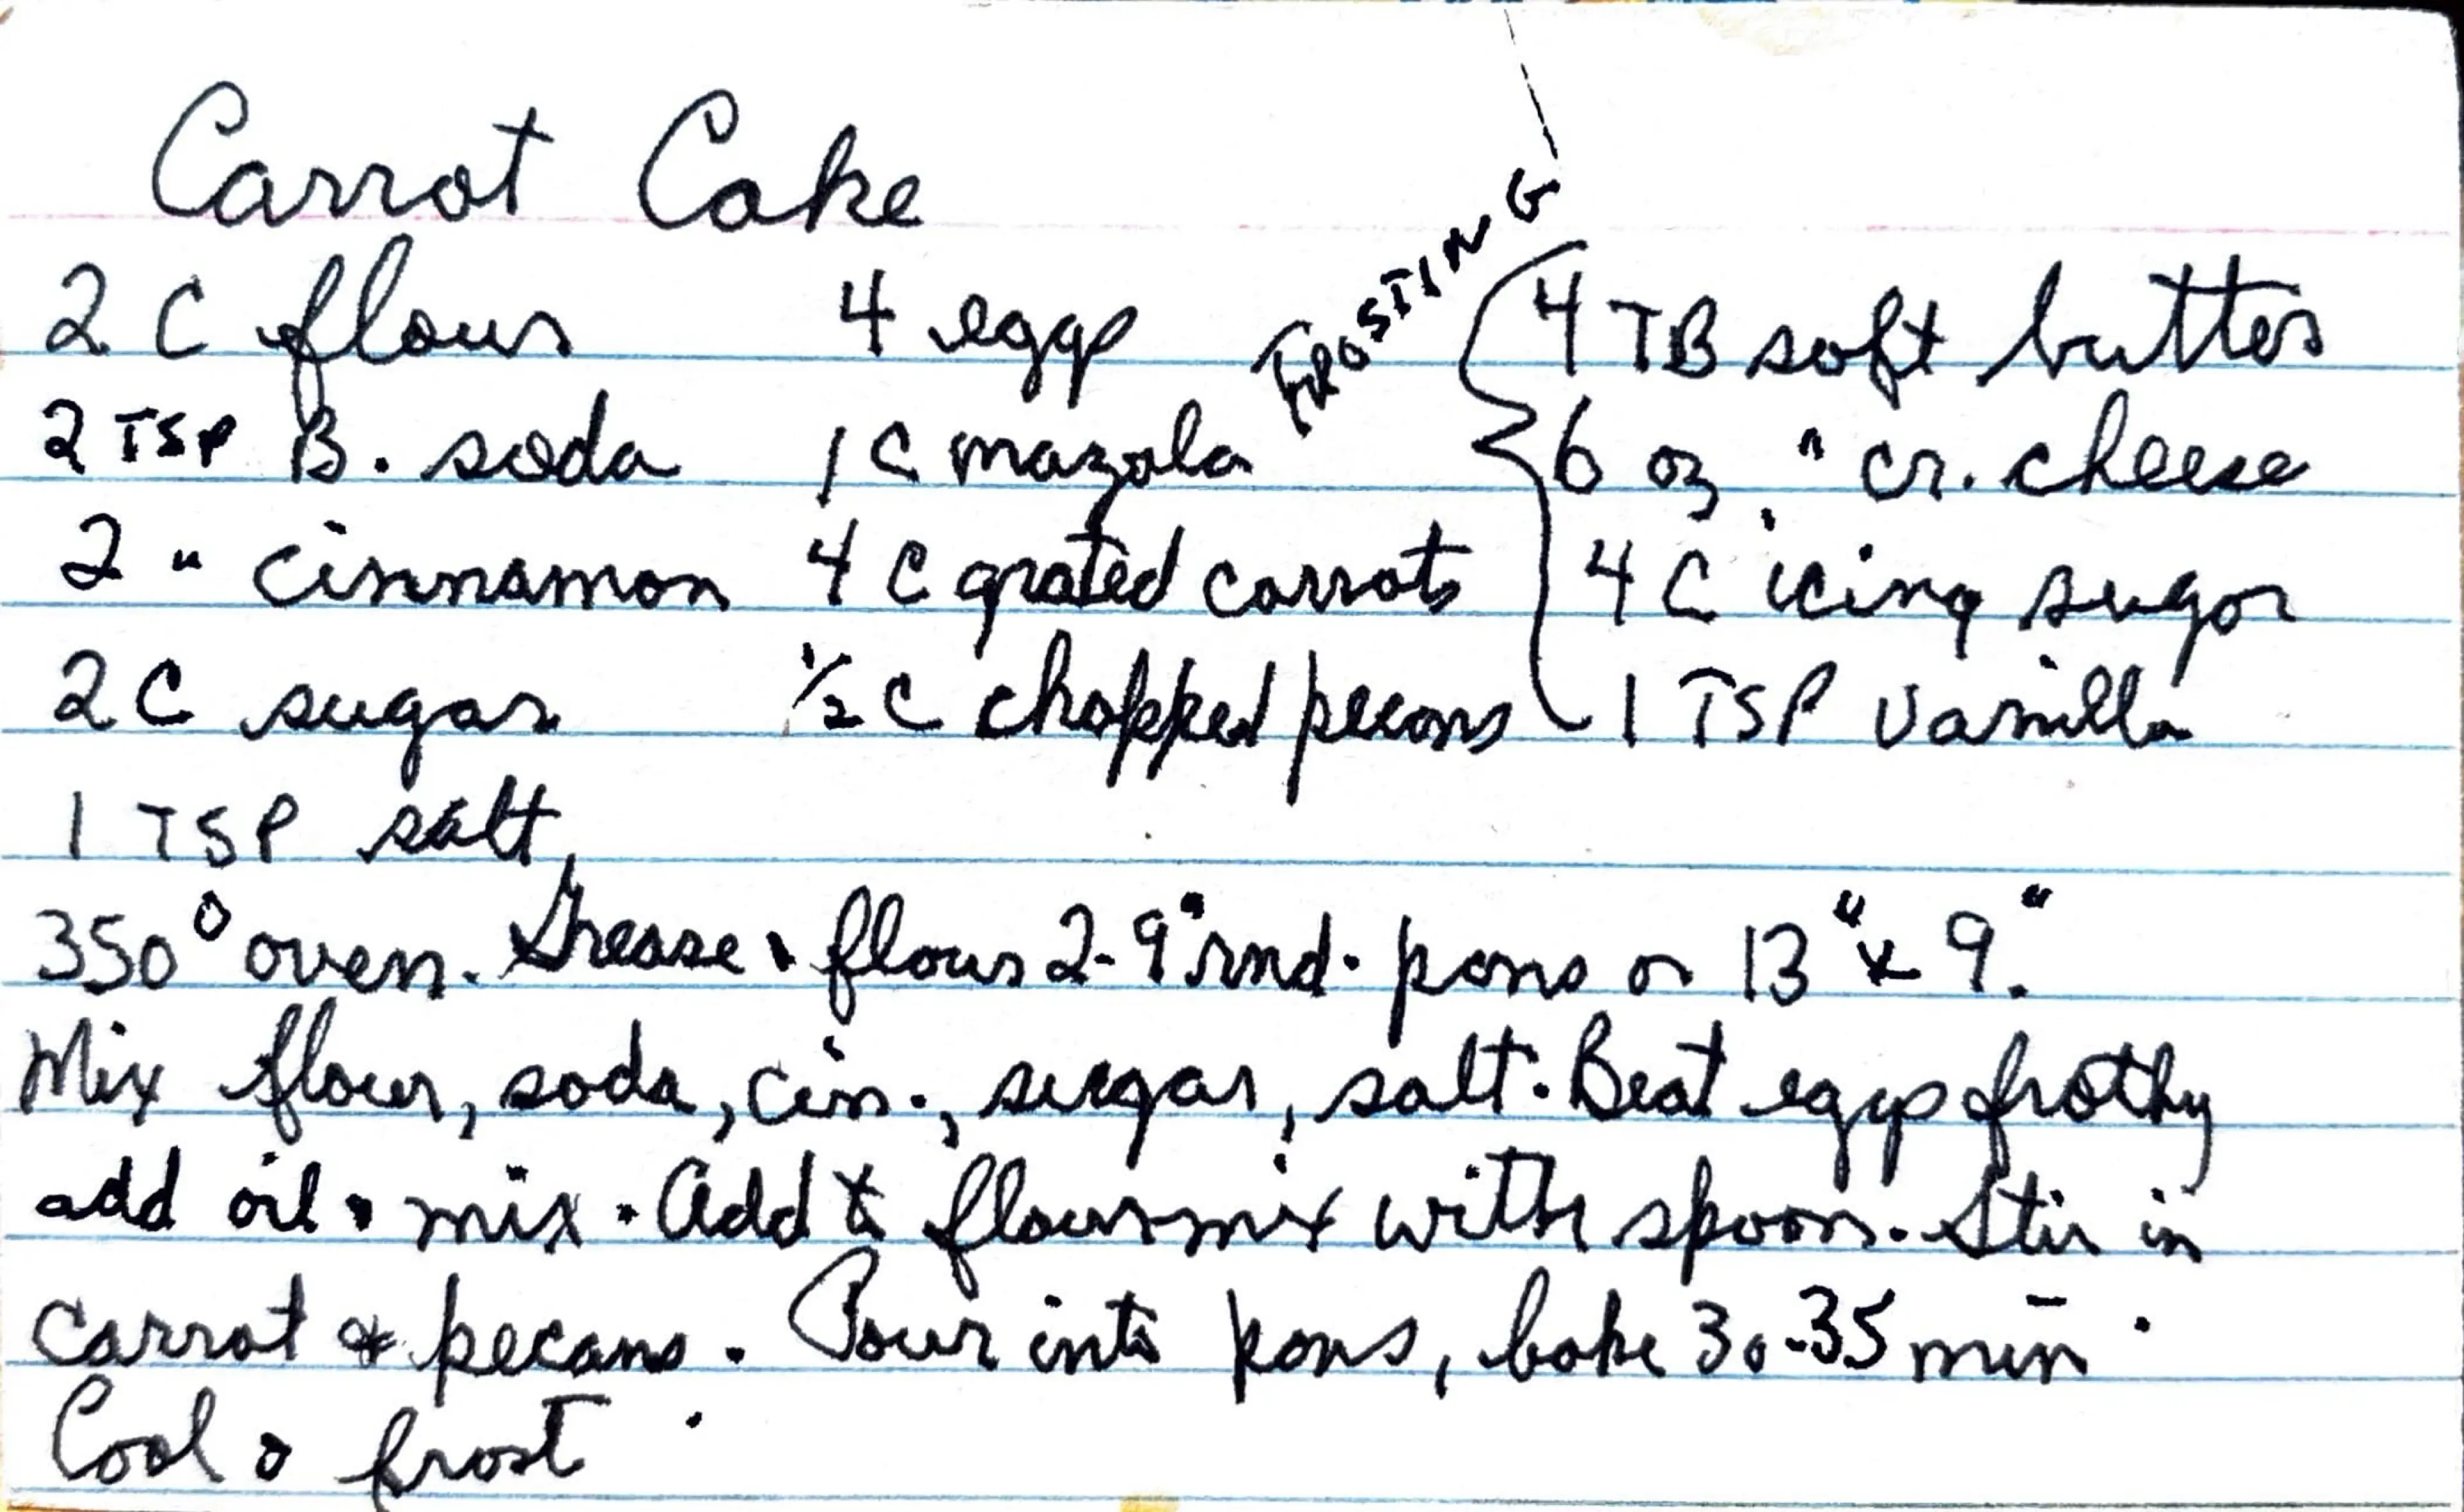 Carrot Cake
2 C flour
2 TSP B. soda
2 " cinnamon
2 C sugar
1 TSP salt
4 eggs
1 C mazola
4 C grated carrots
1/2 C chopped pecans
FROSTING
4 TB soft butter
6 oz. " cr. cheese
4 C icing sugar
1 TSP vanilla
350° oven. Grease & flour 2-9" rnd. pans or 13" x 9".
Mix flour, soda, cin., sugar, salt. Beat eggs frothy
add oil & mix. Add to flour mix with spoon. Stir in
carrot & pecans. Pour into pans, bake 30-35 min.
Cool & frost.